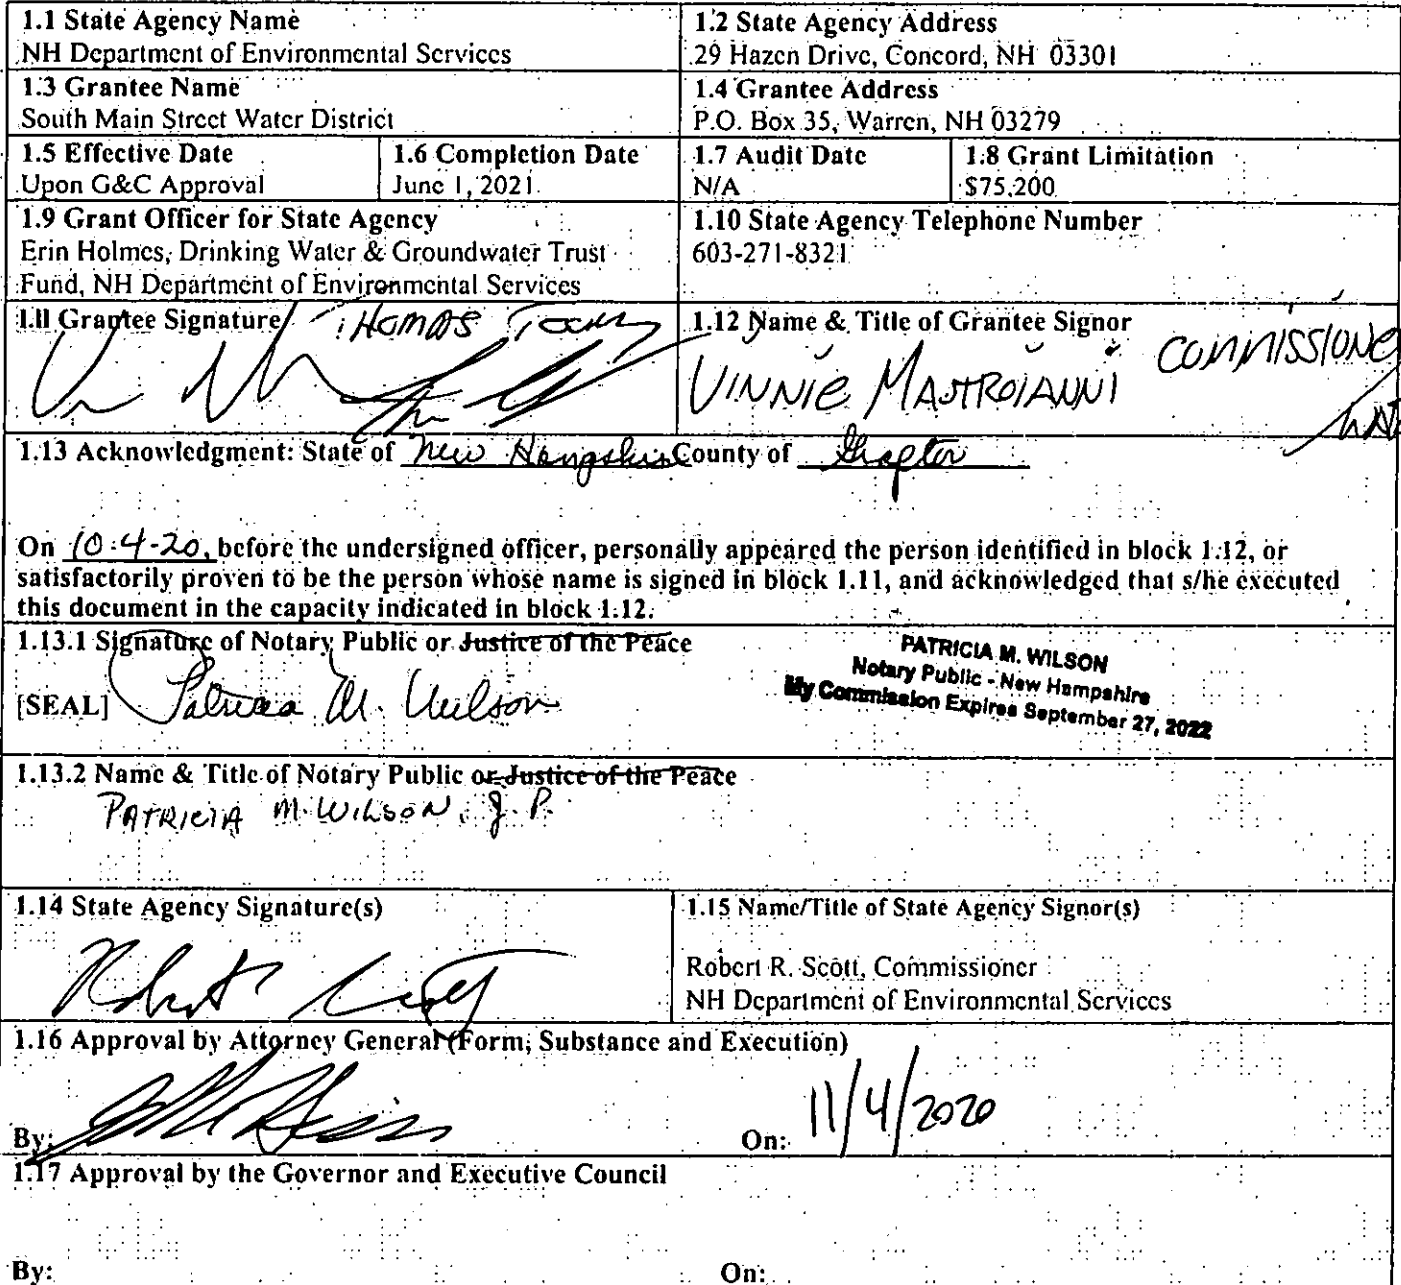 1.1 State Agency Name
NH Department of Environmental Services
1.2 State Agency Address
29 Hazen Drive, Concord, NH 03301
1.3 Grantee Name
South Main Street Water District
1.4 Grantee Address
P.O. Box 35, Warren, NH 03279
1.5 Effective Date
Upon G&C Approval
1.6 Completion Date
June 1, 2021
1.7 Audit Date
N/A
1.8 Grant Limitation
$75,200
1.9 Grant Officer for State Agency
Erin Holmes, Drinking Water & Groundwater Trust
Fund, NH Department of Environmental Services
1.10 State Agency Telephone Number
603-271-8321
1.11 Grantee Signature
THOMAS
1.12 Name & Title of Grantee Signor
COMMISSIONE
VINNIE MASTROIANNI
1.13 Acknowledgment: State of New Hampshire County of Grafton
On 10-4-20, before the undersigned officer, personally appeared the person identified in block 1.12, or
satisfactorily proven to be the person whose name is signed in block 1.11, and acknowledged that s/he executed
this document in the capacity indicated in block 1.12.
1.13.1 Signature of Notary Public or Justice of the Peace
[SEAL] Patricia M. Wilson
PATRICIA M. WILSON
Notary Public - New Hampshire
My Commission Expires September 27, 2022
1.13.2 Name & Title of Notary Public or Justice of the Peace
PATRICIA M. WILSON, J.P.
1.14 State Agency Signature(s)
1.15 Name/Title of State Agency Signor(s)
Robert R. Scott, Commissioner
NH Department of Environmental Services
1.16 Approval by Attorney General (Form, Substance and Execution)
By:
On: 11/4/2020
1.17 Approval by the Governor and Executive Council
By:
On: